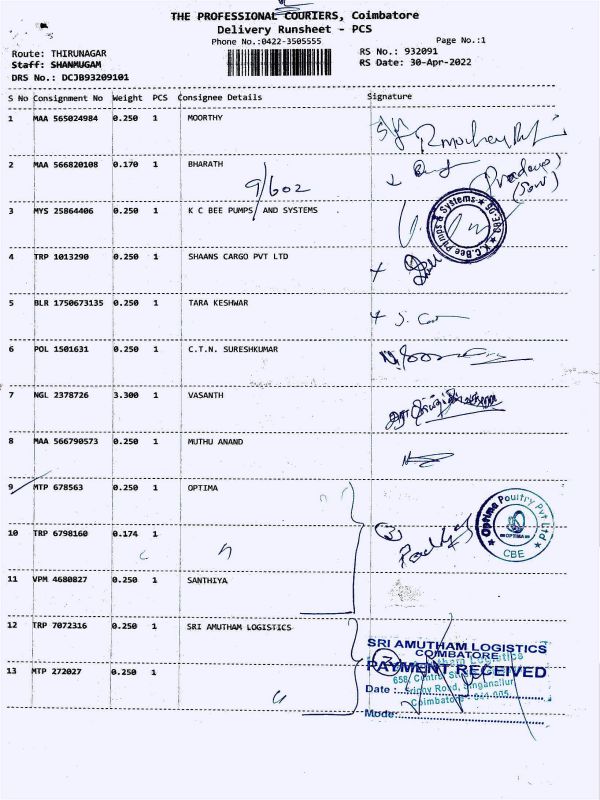 THE PROFESSIONAL COURIERS, Coimbatore
Delivery Runsheet - PCS
Phone No.:0422-3505555
Page No.:1
Route: THIRUNAGAR
RS No.: 932091
Staff: SHANMUGAM
RS Date: 30-Apr-2022
DRS No.: DCJB93209101
S No Consignment No Weight PCS Consignee Details Signature
1 MAA 565024984 0.250 1 MOORTHY
2 MAA 566820108 0.170 1 BHARATH
9/602
(Son)
3 MYS 25864406 0.250 1 K C BEE PUMPS AND SYSTEMS .
K.C.Bee Pumps & Systems
4 TRP 1013290 0.250 1 SHAANS CARGO PVT LTD
5 BLR 1750673135 0.250 1 TARA KESHWAR
6 POL 1501631 0.250 1 C.T.N. SURESHKUMAR
7 NGL 2378726 3.300 1 VASANTH
8 MAA 566790573 0.250 1 MUTHU ANAND
9 MTP 678563 0.250 1 OPTIMA
Optima Poultry Pvt Ltd
OPTIMA
CBE
10 TRP 6798160 0.174 1
3
11 VPM 4680827 0.250 1 SANTHIYA
12 TRP 7072316 0.250 1 SRI AMUTHAM LOGISTICS
SRI AMUTHAM LOGISTICS
COIMBATORE
PAYMENT RECEIVED
13 MTP 272027 0.250 1
Date :
Mode: